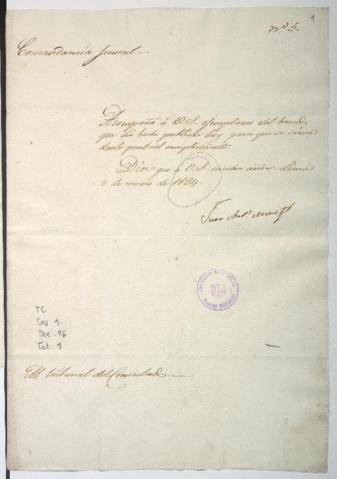 1
Nº 5.
Comandancia General.
Acompaño á V.S. ejemplares del bando
que he hecho publicar hoy para que se sirva
darle puntual cumplimiento.
Dios gue á V.S. muchos años. Lima
5 de marzo de 1824.
Juan Antº
TC
Caj. 9
Doc. 16
Fol. 1
Al tribunal del Consulado